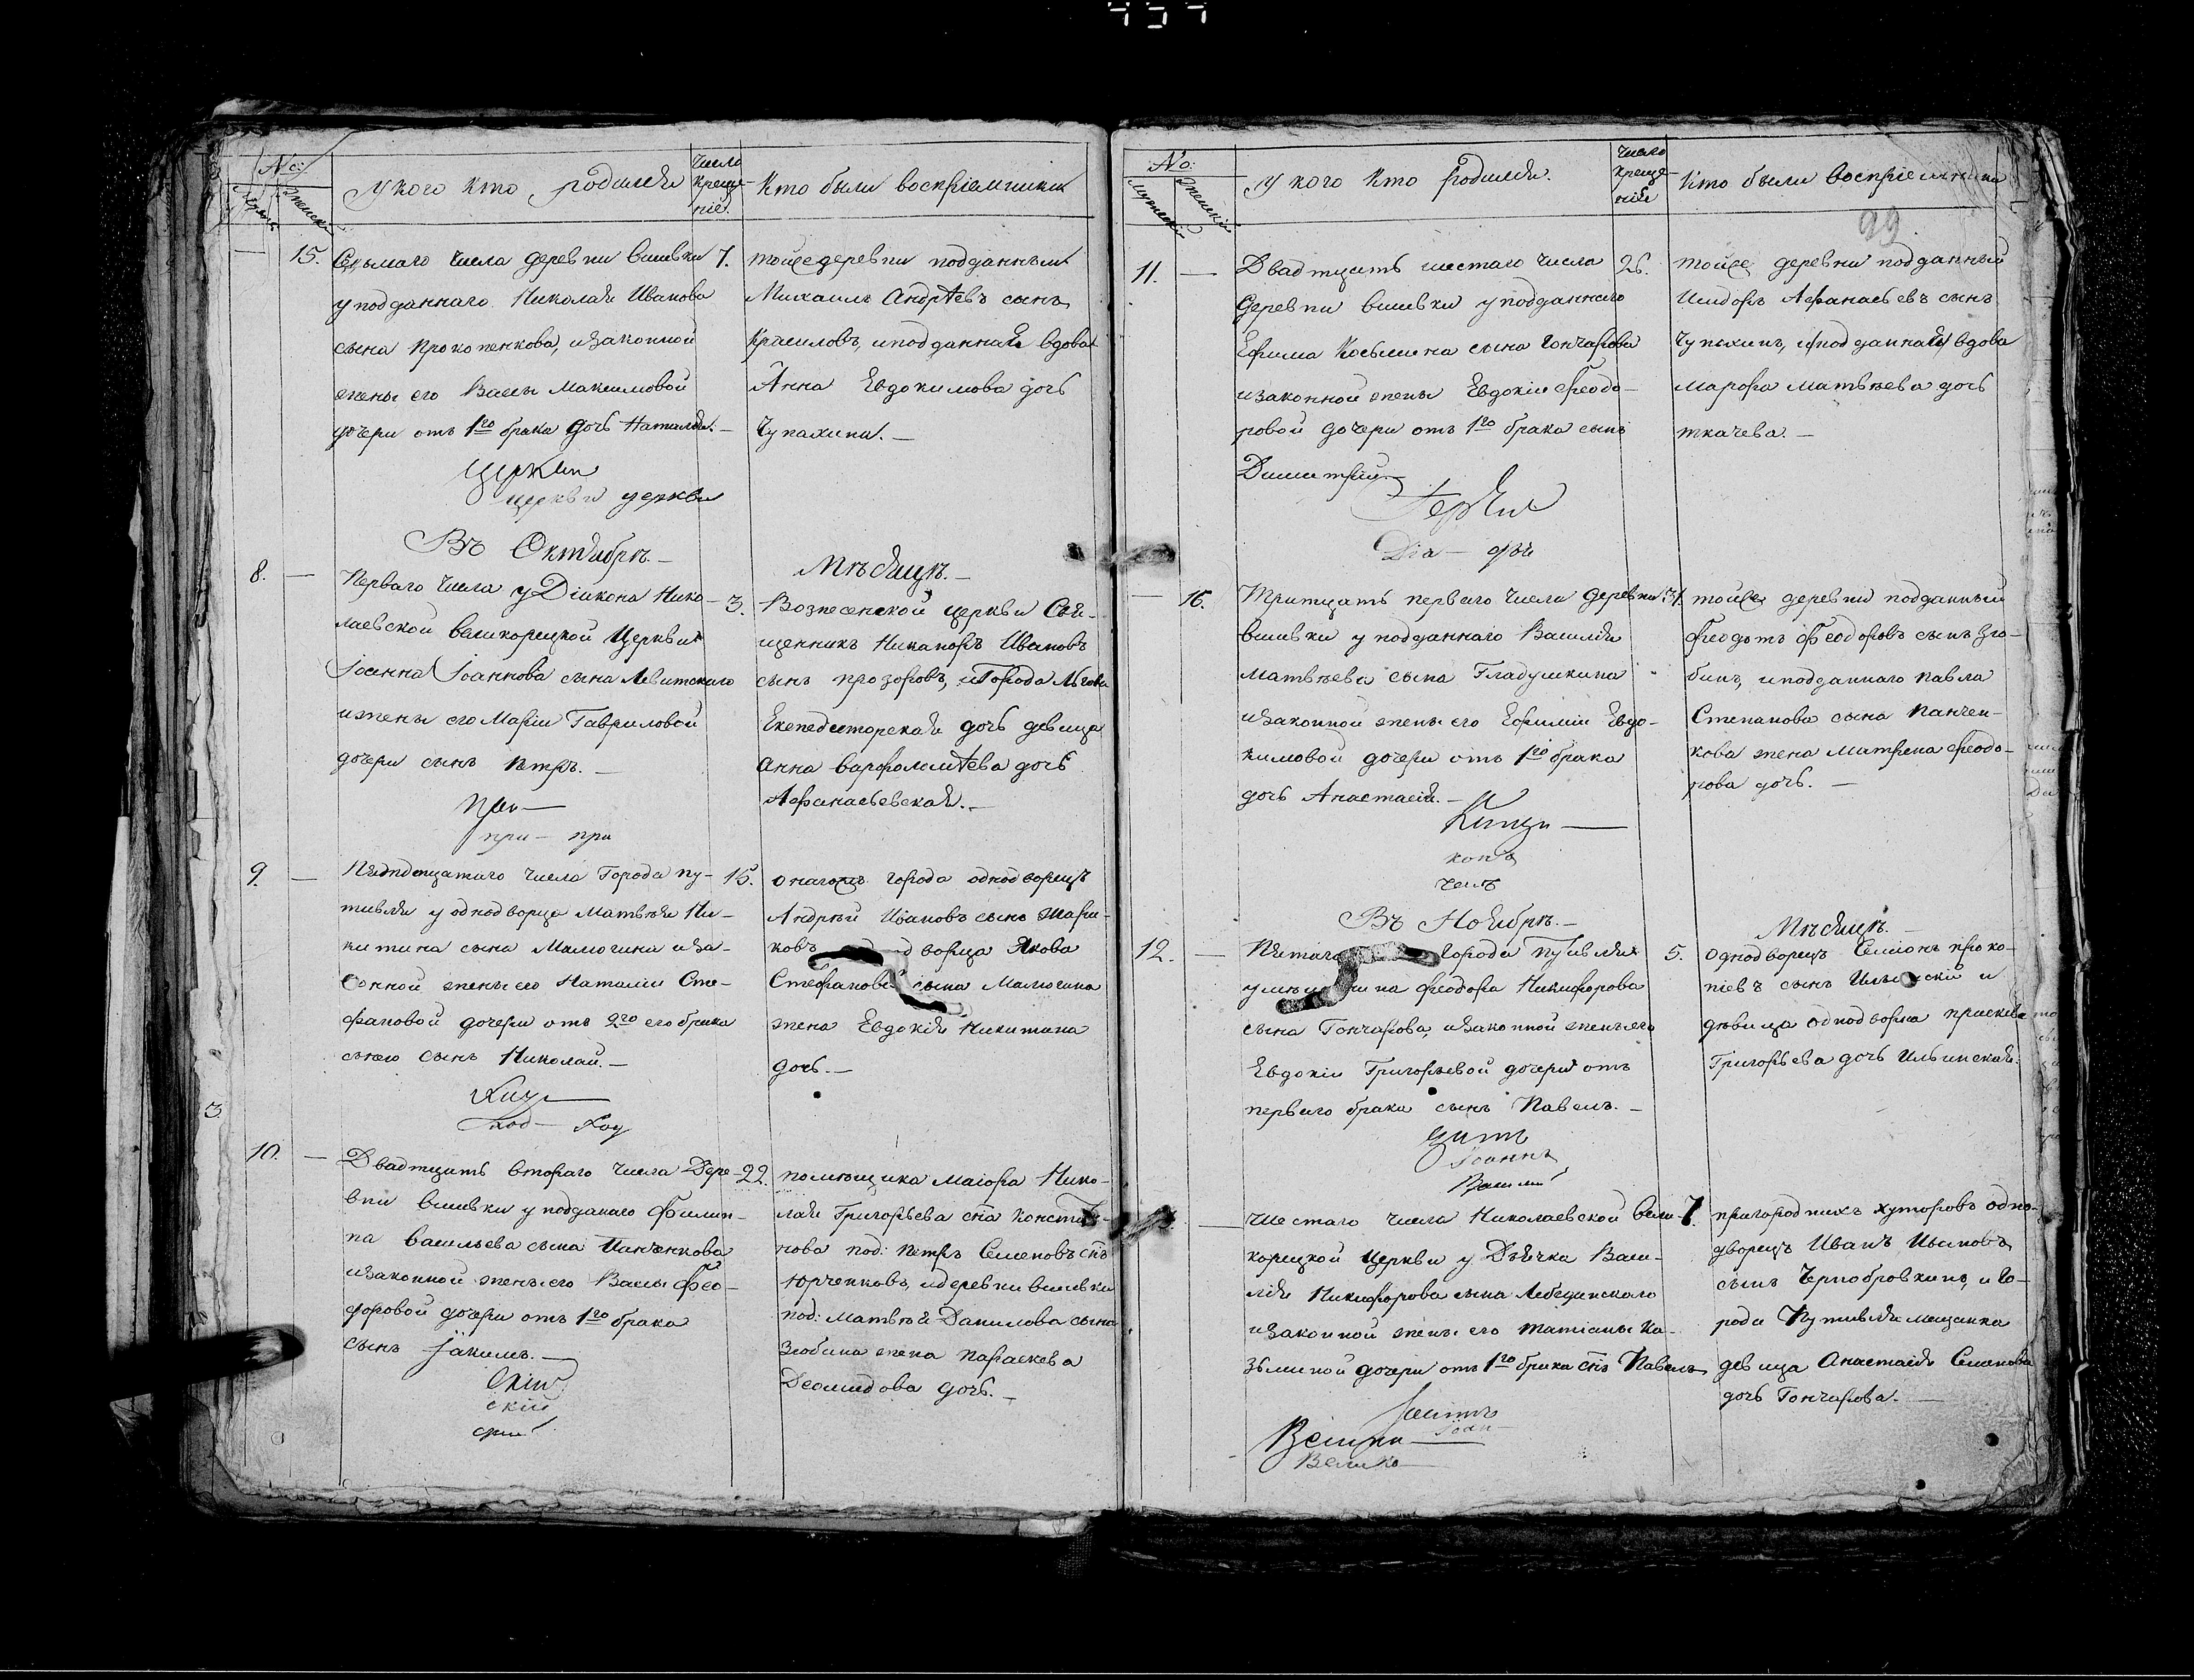 No:
Женскій
у кого кто родился
число
креще-
нія.
Кто были воспріемники
15. Седьмаго числа деревни Вшивки 7.
у подданнаго Николая Иванова
сына Прокопенкова, и законной
жены его Вассы Максимовой
дочери отъ 1го брака дочь Наталія. —
тойже деревни подданныи
Михаилъ Андреевъ сынъ
и подданная вдова
Анна Евдокимова дочь
Чупахина. —
церкви церкви
Въ Октябрѣ. —
Мѣсяцѣ. —
8. — Перваго числа у Діакона Нико- 3.
лаевской великорецкой Церкви
Іоанна Іоаннова сына Левитскаго
и жены его Маріи Гавриловой
дочери сынъ Петръ. —
Вознесенской церкви Свя-
щенникъ Никаноръ Ивановъ
сынъ Прозоровъ, и Города Льгова
Екпедиторская дочь девица
Анна Варфоломеева дочь
Афанасьевская. —
при — при
9. — Пятнадцатаго числа Города Пу- 15.
тивля у однодворца Матвѣя Ни-
китина сына Малютина и за-
конной жены его Наталии Сте-
фановой дочери отъ 2го его брака
сынъ Николай. —
онагожъ города однодворецъ
Андрей Ивановъ сынъ Шари-
ковъ дворца Якова
Стефанова сына Малютина
жена Евдокія Никитина
дочь. —
3
10. — Двадцать втораго числа Дере- 22.
вни Вшивки у подданаго Филип-
па Васильева сына Панченкова
и законной жены его Вассы Фео-
доровой дочери отъ 1го брака
сынъ Іакимъ. —
помѣщика Маіора Нико-
лая Григорьева сна Константи-
нова под: Петръ Семеновъ снъ
Юрченковъ, и деревни Вшивки
под: Матвѣй Данилова сына
Злобина жена Параскева
Деомидова дочь. —
скій
No:
Мужескій
Женскій
у кого кто родился.
число
креще-
нія
Кто были воспріемники
99
11. — Двадцать шестаго числа 26.
Деревни Вшивки у подданнаго
Ефима Косьмина сына Гончарова
и законной жены Евдокіи Феодо-
ровой дочери отъ 1го брака сынъ
Димитрій. —
тойже деревни подданный
Исидоръ Афанасьевъ сынъ
Чупахинъ, и подданная вдова
Марфа Матвѣева дочь
Ткачева. —
Діа —
— 16. Тритцать перваго числа деревни 31.
Вшивки у подданнаго Василія
Матвѣева сына Гладушкина
и законной жены его Ефиміи Евдо-
кимовой дочери отъ 1го брака
дочь Анастасія. —
тойже деревни подданный
Феодотъ Феодоровъ сынъ Зло-
бинъ, и подданнаго Павла
Степанова сына Панчен-
кова жена Матрена Феодо-
рова дочь. —
Въ Ноябрѣ. —
Мѣсяцѣ. —
12. — Пятаго Города Путивля 5.
у Феодора Никифорова
сына Гончарова, и законной жены его
Евдокіи Григорьевой дочери отъ
перваго брака сынъ Павелъ. —
однодворецъ Симіонъ Проко-
піевъ сынъ Ильинскій и
дѣвица однодворка Праскева
Григорьева дочь Ильинская.
Іоаннъ
Василій
— Шестаго числа Николаевской Вели- 7.
корецкой Церкви у Дьячка Васи-
лія Никифорова сына Лебединскаго
и законной жены его Татіаны Ко-
зьминой дочери отъ 1го брака снъ Павелъ
пригородныхъ хуторовъ одно-
дворецъ Иванъ Ивановъ
сынъ Чернобровкинъ, и Го-
рода Путивля мещанка
девица Анастасія Семенова
дочь Гончарова. —
Іоан
Велико —